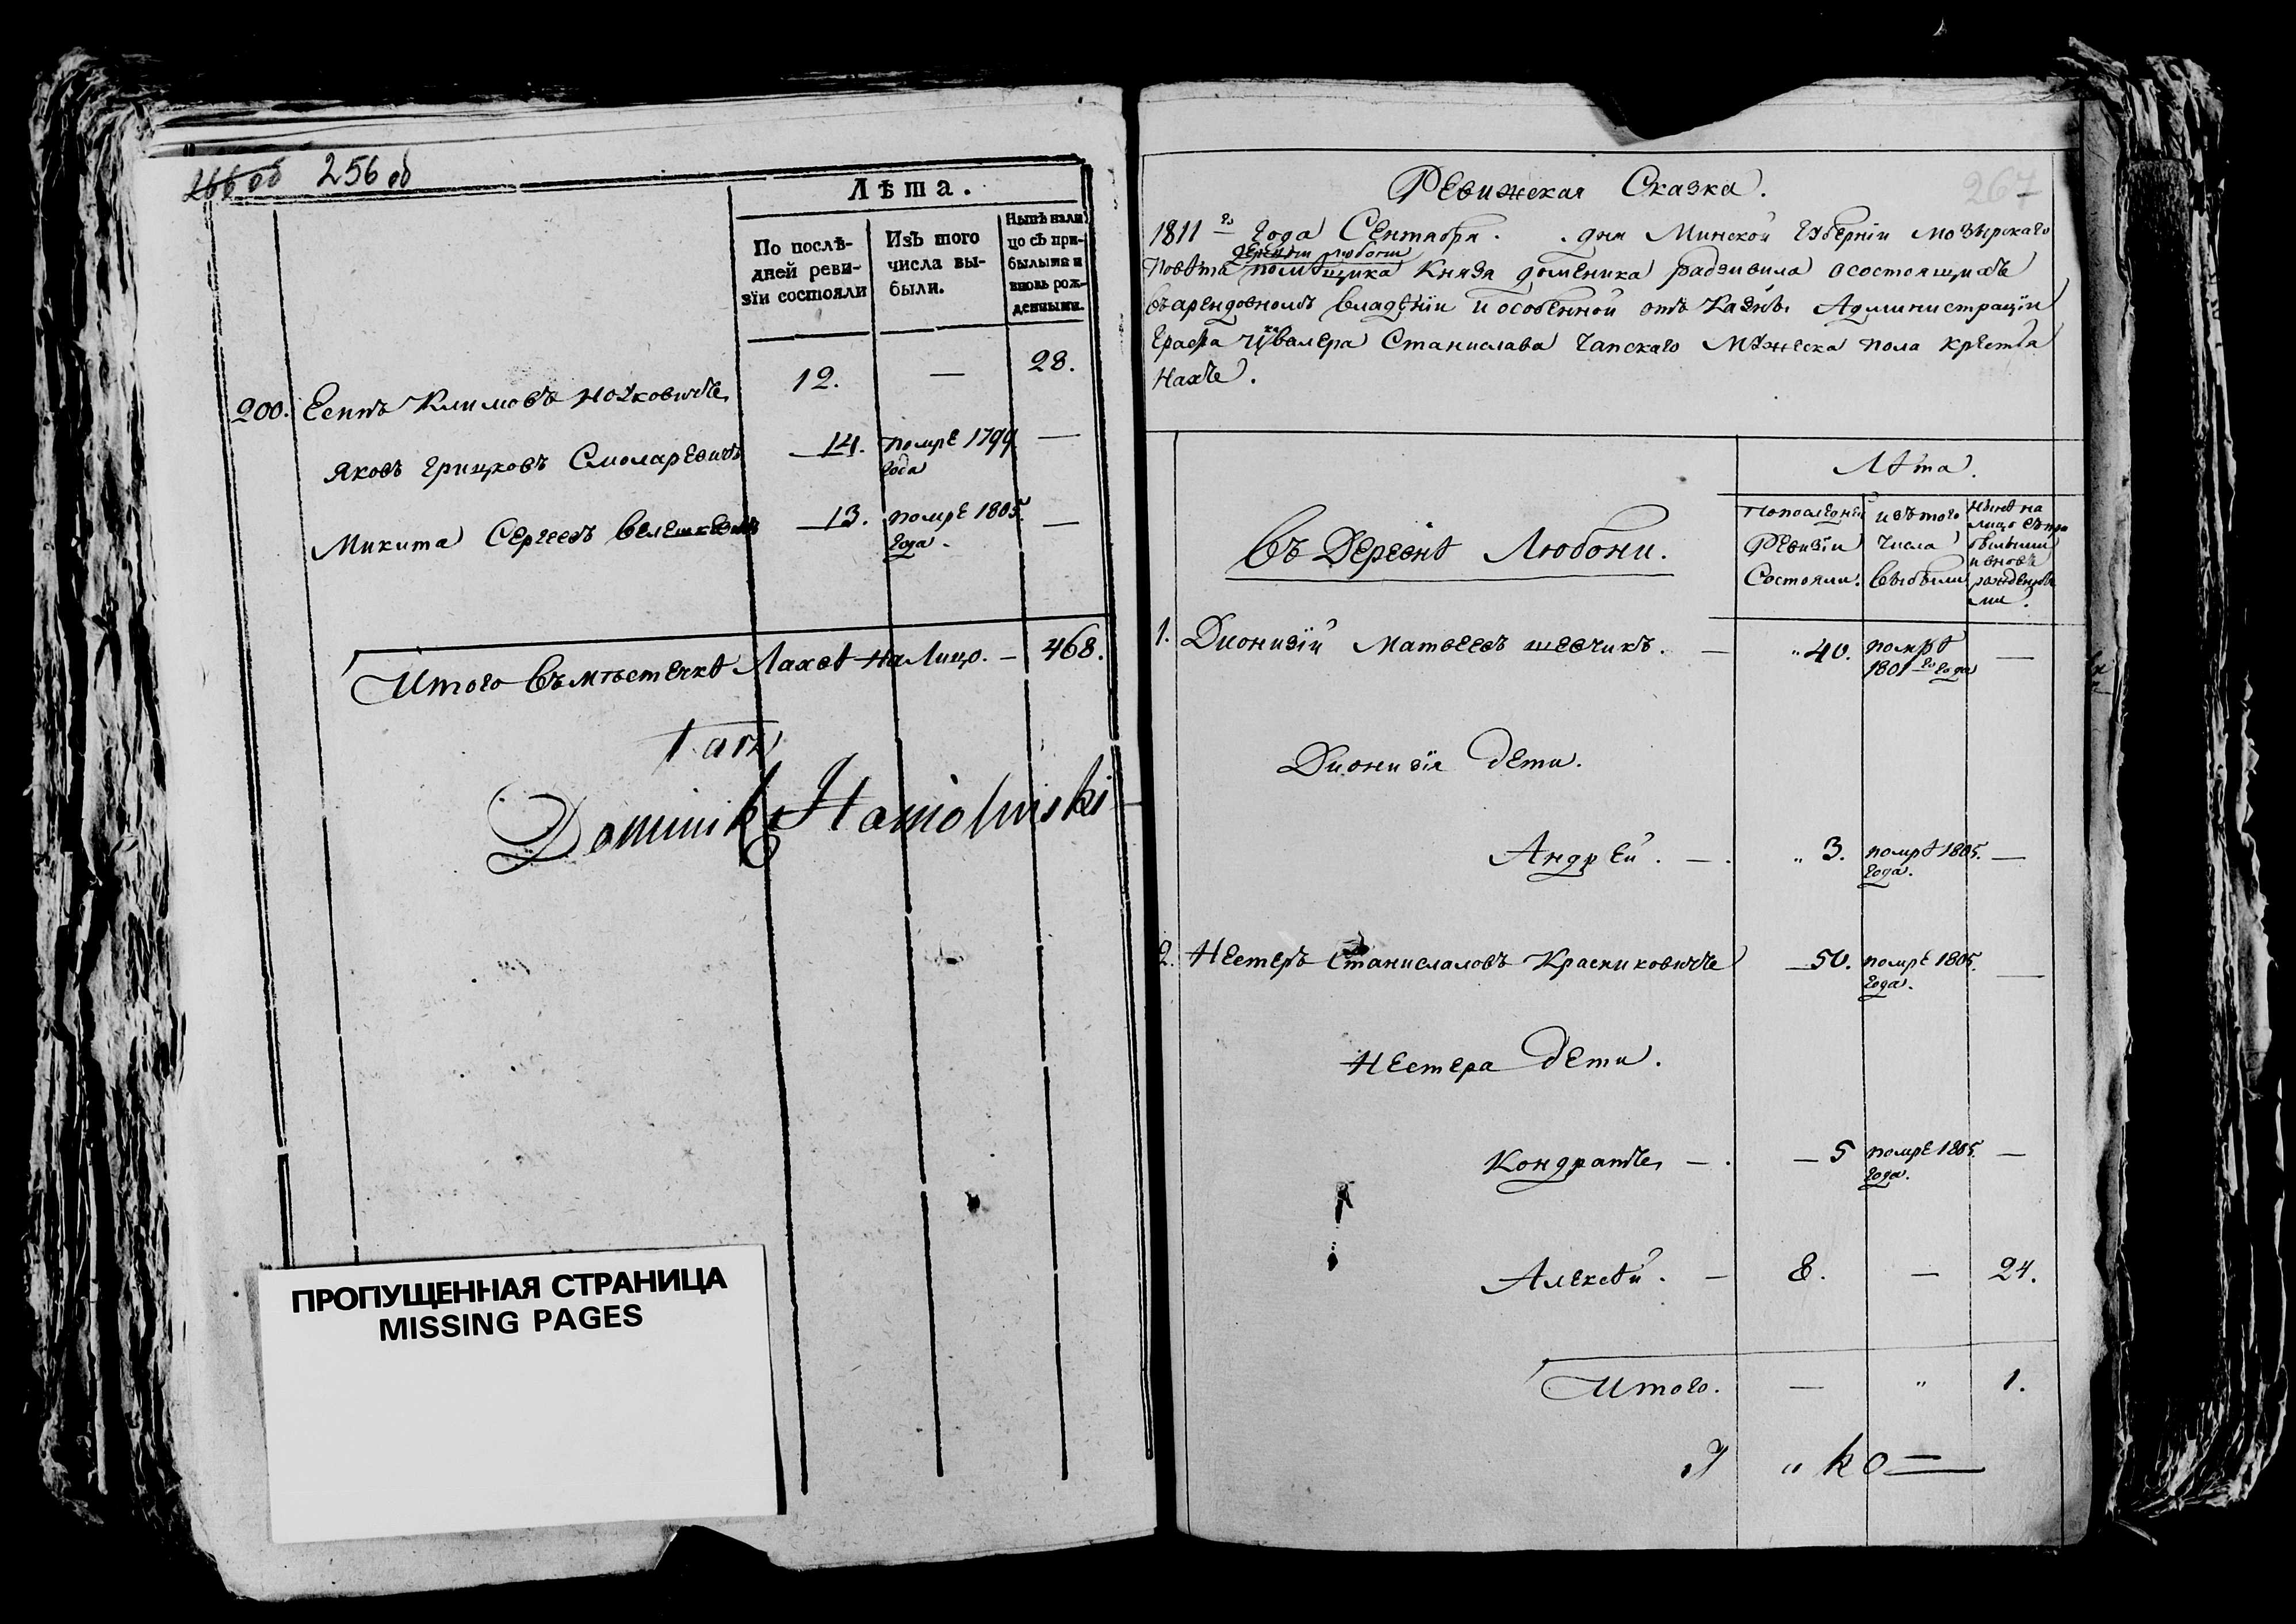 266 об 256 об
Лѣта.
По послѣ-
дней реви-
зїи состояли
Изъ того
числа вы-
были.
Нынѣ нали
цо съ при-
былыми и
вновь рож-
денными.
200. Есипъ Климовъ Ноуковичъ 12. — 28.
Яковъ Грицковъ Смоляревичъ — 14. помре 1799 —
года
Микита Сергеевъ — 13. помре 1805. —
года.
Итого въ мѣстечкѣ Лахвѣ на Лицо. — 468.
Dominik
ПРОПУЩЕННАЯ СТРАНИЦА
MISSING PAGES
267
Ревижская Сказка.
1811 го года Сентября . дня Минской Губернїи Мозырскаго
деревни Любони
повѣта помѣщика Князя Доменика Радзивила осостоящихъ
въ арендовномъ владѣнїи и особенной отъ Казны Администрацїи
Графа Станислава Чапскаго Мужеска пола крестья
нахъ.
Лѣта.
Въ Деревнѣ Любони.
По последней
Ревизїи
Состояли.
изъ того
числа
выбыли
нынѣ на
лицо съ при
былыми
и вновь
рожденны
ми.
1. Дионизїй Матвеевъ Шевчикъ. — 40. помрѣ —
1801 го года
Дионизїя дети.
Андрей. — 3. помрѣ 1805. —
года.
2. Нестеръ Станиславовъ Красниковичъ — 50. помре 1805. —
года.
Нестера дети.
Кондратъ — — 5 помре 1805. —
года.
Алексѣй. — 8. — 24.
Итого. — „ 1.